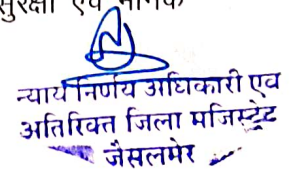 सुरक्षा एवं मानक
न्याय निर्णय अधिकारी एव
अतिरिक्त जिला मजिस्ट्रेट
जैसलमेर